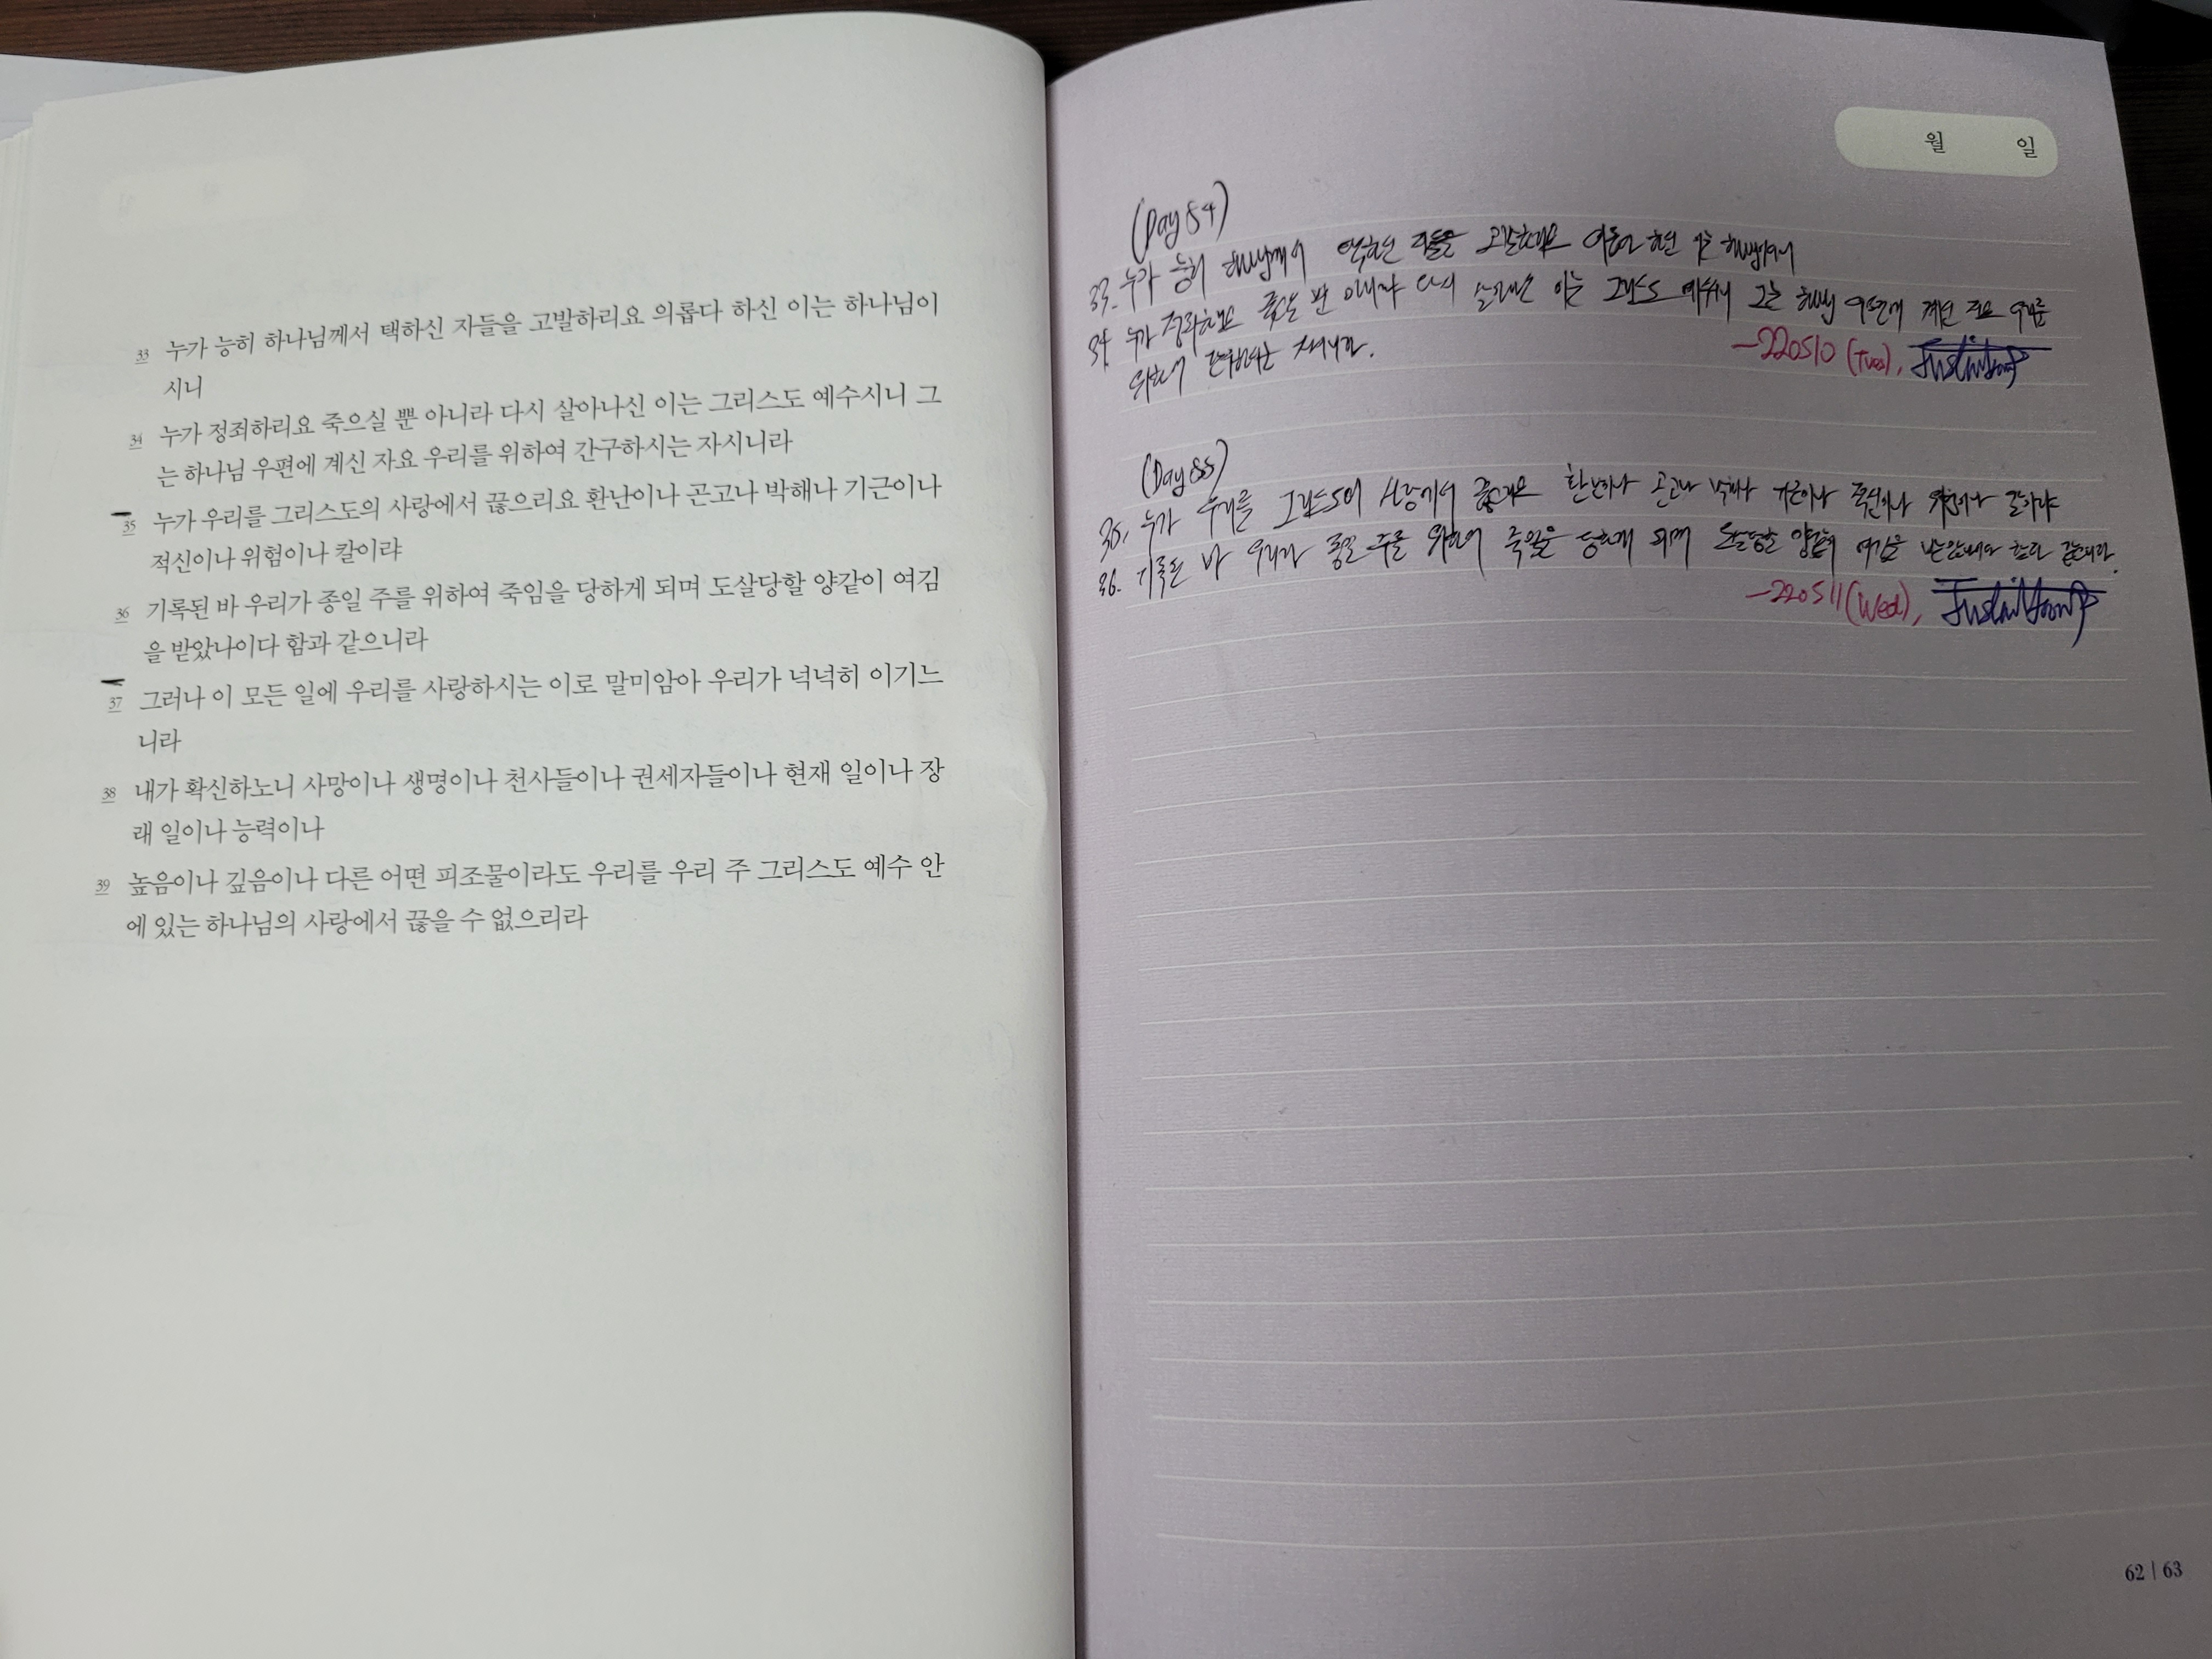 33 누가 능히 하나님께서 택하신 자들을 고발하리요 의롭다 하신 이는 하나님이
시니
34 누가 정죄하리요 죽으실 뿐 아니라 다시 살아나신 이는 그리스도 예수시니 그
는 하나님 우편에 계신 자요 우리를 위하여 간구하시는 자시니라
35 누가 우리를 그리스도의 사랑에서 끊으리요 환난이나 곤고나 박해나 기근이나
적신이나 위험이나 칼이랴
36 기록된 바 우리가 종일 주를 위하여 죽임을 당하게 되며 도살당할 양같이 여김
을 받았나이다 함과 같으니라
37 그러나 이 모든 일에 우리를 사랑하시는 이로 말미암아 우리가 넉넉히 이기느
니라
38 내가 확신하노니 사망이나 생명이나 천사들이나 권세자들이나 현재 일이나 장
래 일이나 능력이나
39 높음이나 깊음이나 다른 어떤 피조물이라도 우리를 우리 주 그리스도 예수 안
에 있는 하나님의 사랑에서 끊을 수 없으리라
월 일
(Day 84)
33. 누가 능히 하나님께서 택하신 자들을 고발하리요 의롭다 하신 이는 하나님이시니
34 누가 정죄하리요 죽으실 뿐 아니라 다시 살아나신 이는 그리스도 예수시니 그는 하나님 우편에 계신 자요 우리를
위하여 간구하시는 자시니라.
-220510 (Tue),
(Day 85)
35. 누가 우리를 그리스도의 사랑에서 끊으리요 환난이나 곤고나 박해나 기근이나 적신이나 위험이나 칼이랴
36. 기록된 바 우리가 종일 주를 위하여 죽임을 당하게 되며 도살당할 양같이 여김을 받았나이다 함과 같으니라.
-220511 (Wed),
62 | 63